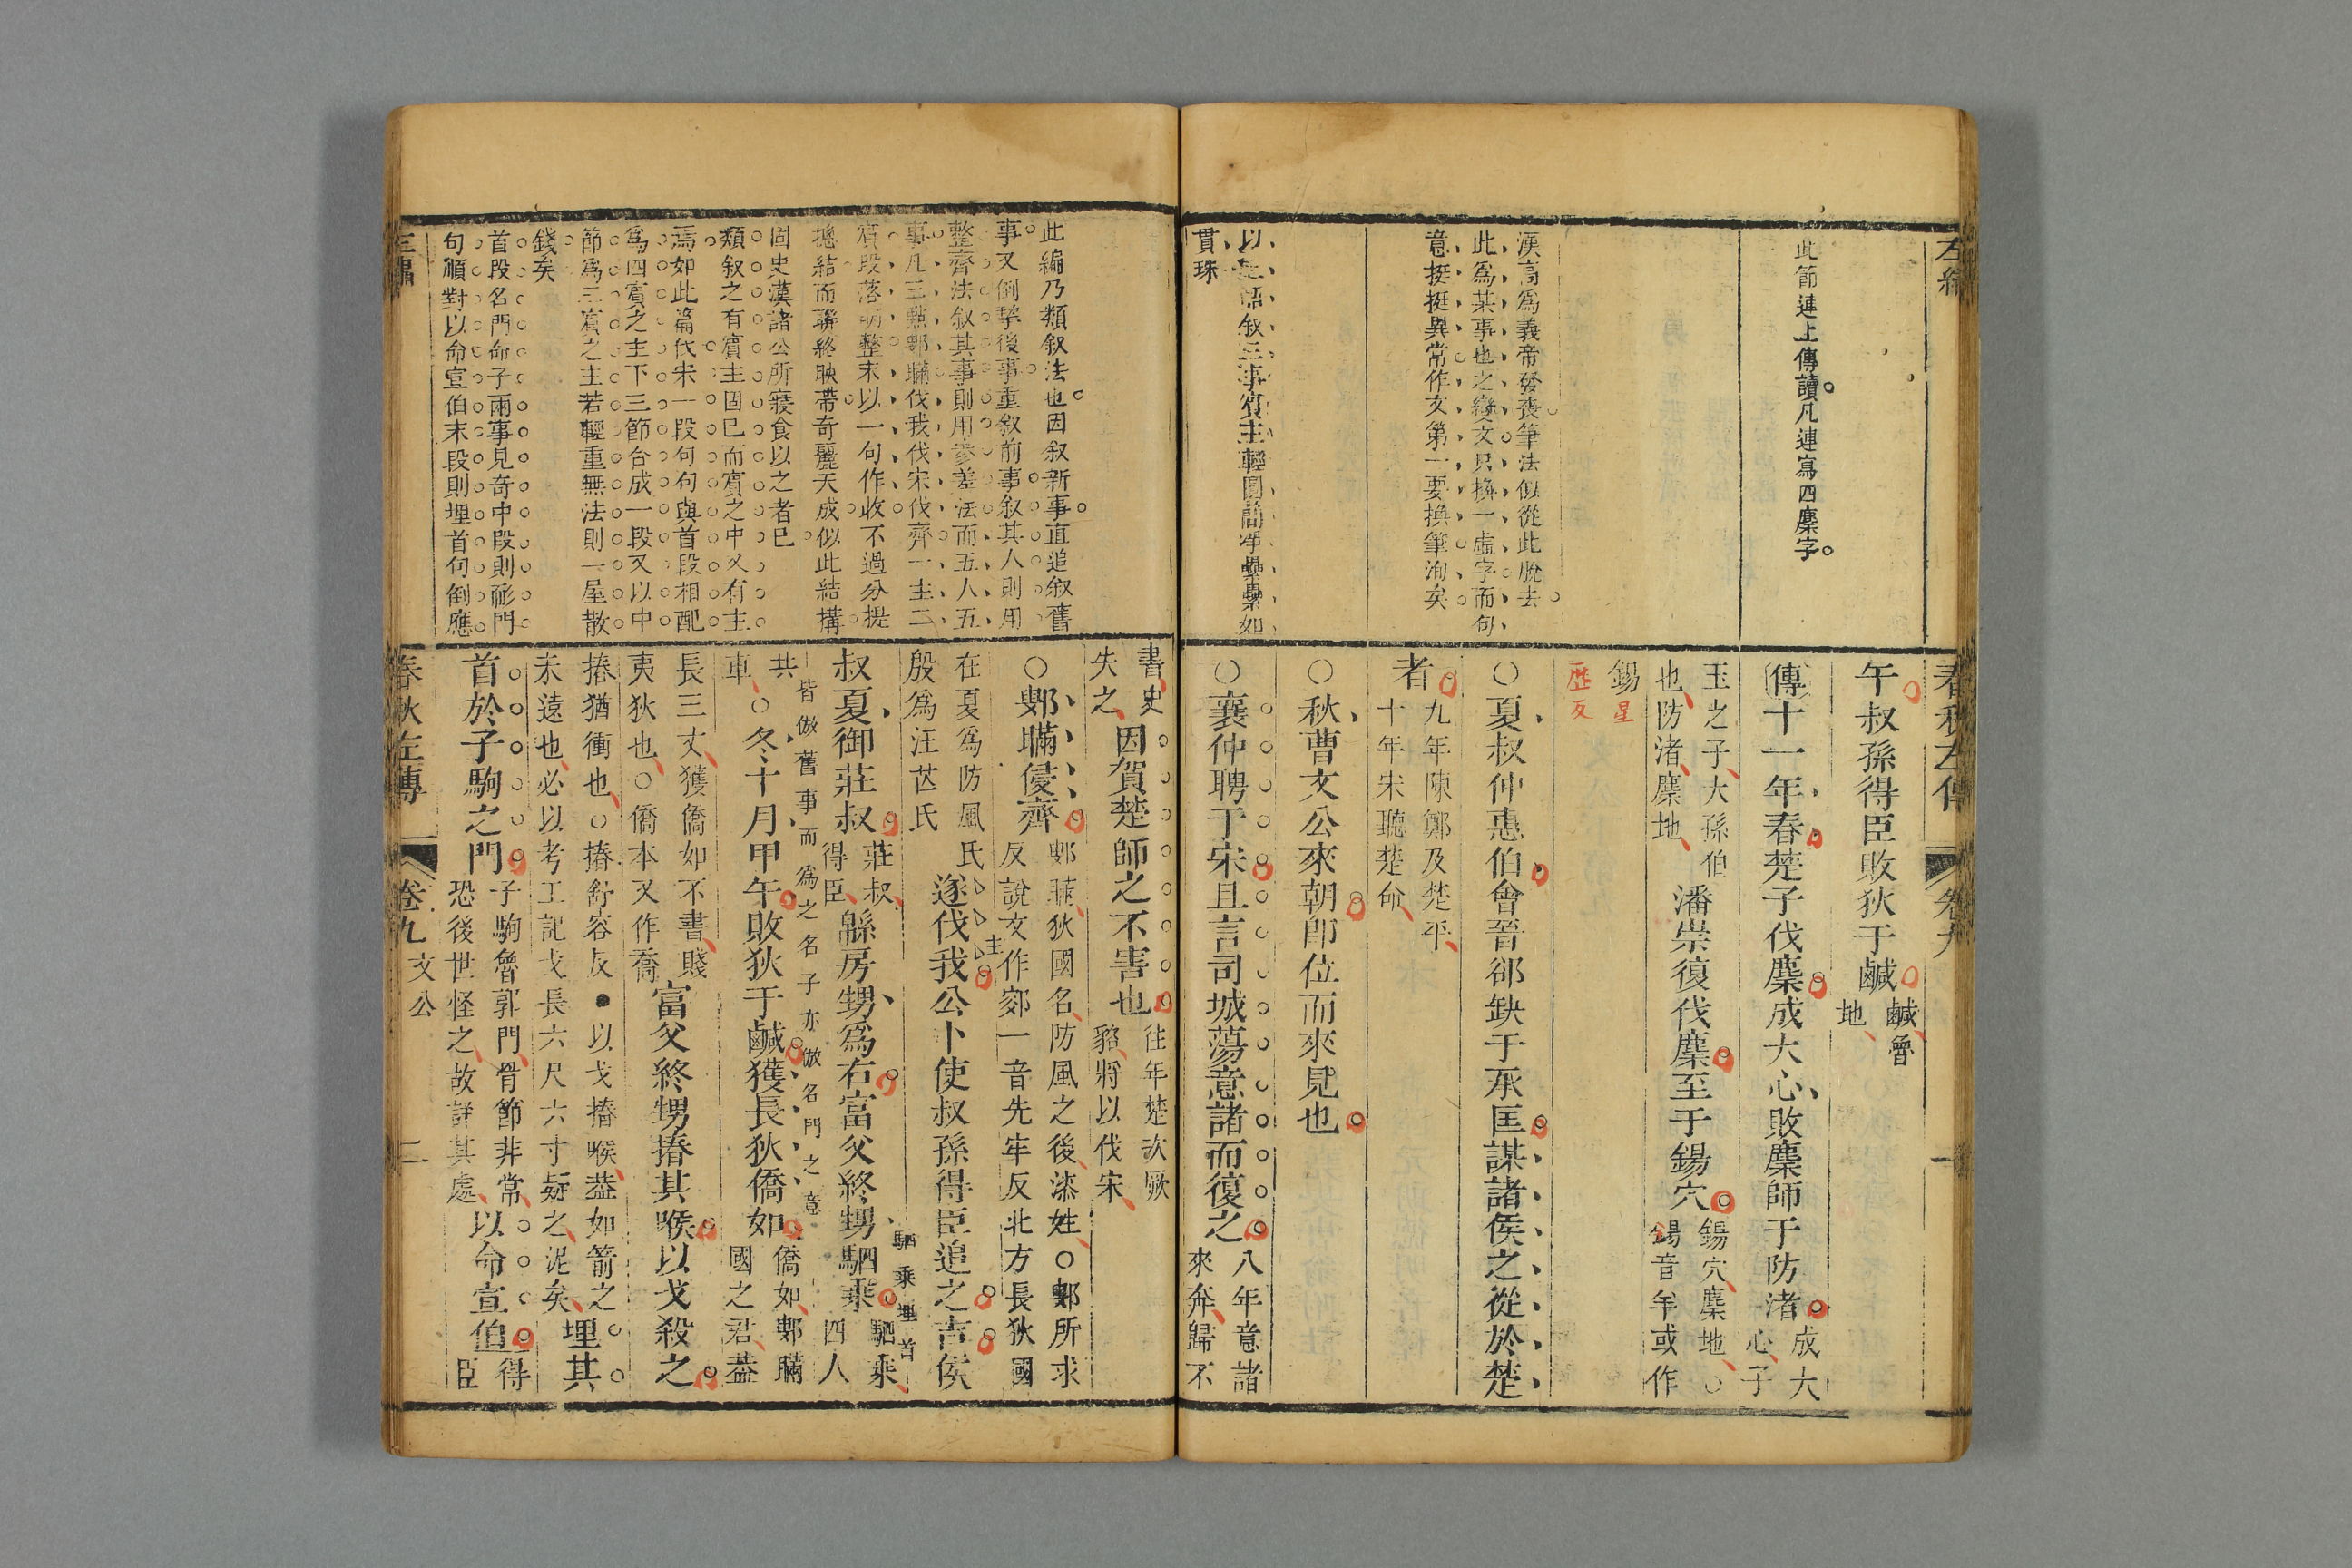 左繡
此節連上傳讀凡連寫四麇字
漢高爲義帝發喪筆法似從此脫去
此爲某事也之變文只換一虛字而句
意挺挺異常作文第一要換筆洵矣
敘三事賓主輕圓簡淨纍纍如
貫珠
春秋左傳
卷九
一
午叔孫得臣敗狄于鹹
鹹魯
地
傳十一年春楚子伐麇成大心敗麇師于防渚
成大
心子
玉之子大孫伯
也防渚麇地
潘崇復伐麇至于錫穴
錫穴麇地○
錫音羊或作
錫星
歷反
○夏叔仲惠伯會晉郤缺于承匡謀諸侯之從於楚
者
九年陳鄭及楚平
十年宋聽楚命
○秋曹文公來朝卽位而來見也
○襄仲聘于宋且言司城蕩意諸而復之
八年意諸
來奔歸不
此編乃類敘法也因敘新事直追敘舊
事又倒擊後事重敘前事敘其人則用
整齊法敘其事則用參差法而五人五
事凡三點鄋瞞伐我伐宋伐齊一主二
賓段落明整末以一句作收不過分提
摠結而聯絡映帶奇麗天成似此結構
固史漢諸公所寢食以之者已
類敘之有賓主固已而賓之中又有主
焉如此篇伐宋一段句句與首段相配
爲四賓之主下三節合成一段又以中
節爲三賓之主若輕重無法則一屋散
錢矣
首段名門命子兩事見奇中段則耏門
句順對以命宣伯末段則埋首句倒應
書史
失之
因賀楚師之不害也
往年楚次厥
貉將以伐宋
○鄋瞞侵齊
鄋瞞狄國名防風之後漆姓○鄋所求
反說文作鄋一音先牢反北方長狄國
在夏爲防風氏
殷爲汪芒氏
遂伐我公卜使叔孫得臣追之吉侯
主
叔夏御莊叔
莊叔
得臣
緜房甥爲右富父終甥駟乘
駟乘
四人
駟乘埋首
共
車
皆倣舊事而爲之名子亦倣名門之意
○冬十月甲午敗狄于鹹獲長狄僑如
僑如鄋瞞
國之君葢
長三丈獲僑如不書賤
夷狄也○僑本又作喬
富父終甥摏其喉以戈殺之
摏猶衝也○摏舒容反●以戈摏喉葢如箭之
未遠也必以考工記戈長六尺六寸疑之泥矣
埋其
首於子駒之門
子駒魯郭門骨節非常
恐後世怪之故詳其處
以命宣伯
得
臣
左繡
春秋左傳
卷九
文公
二